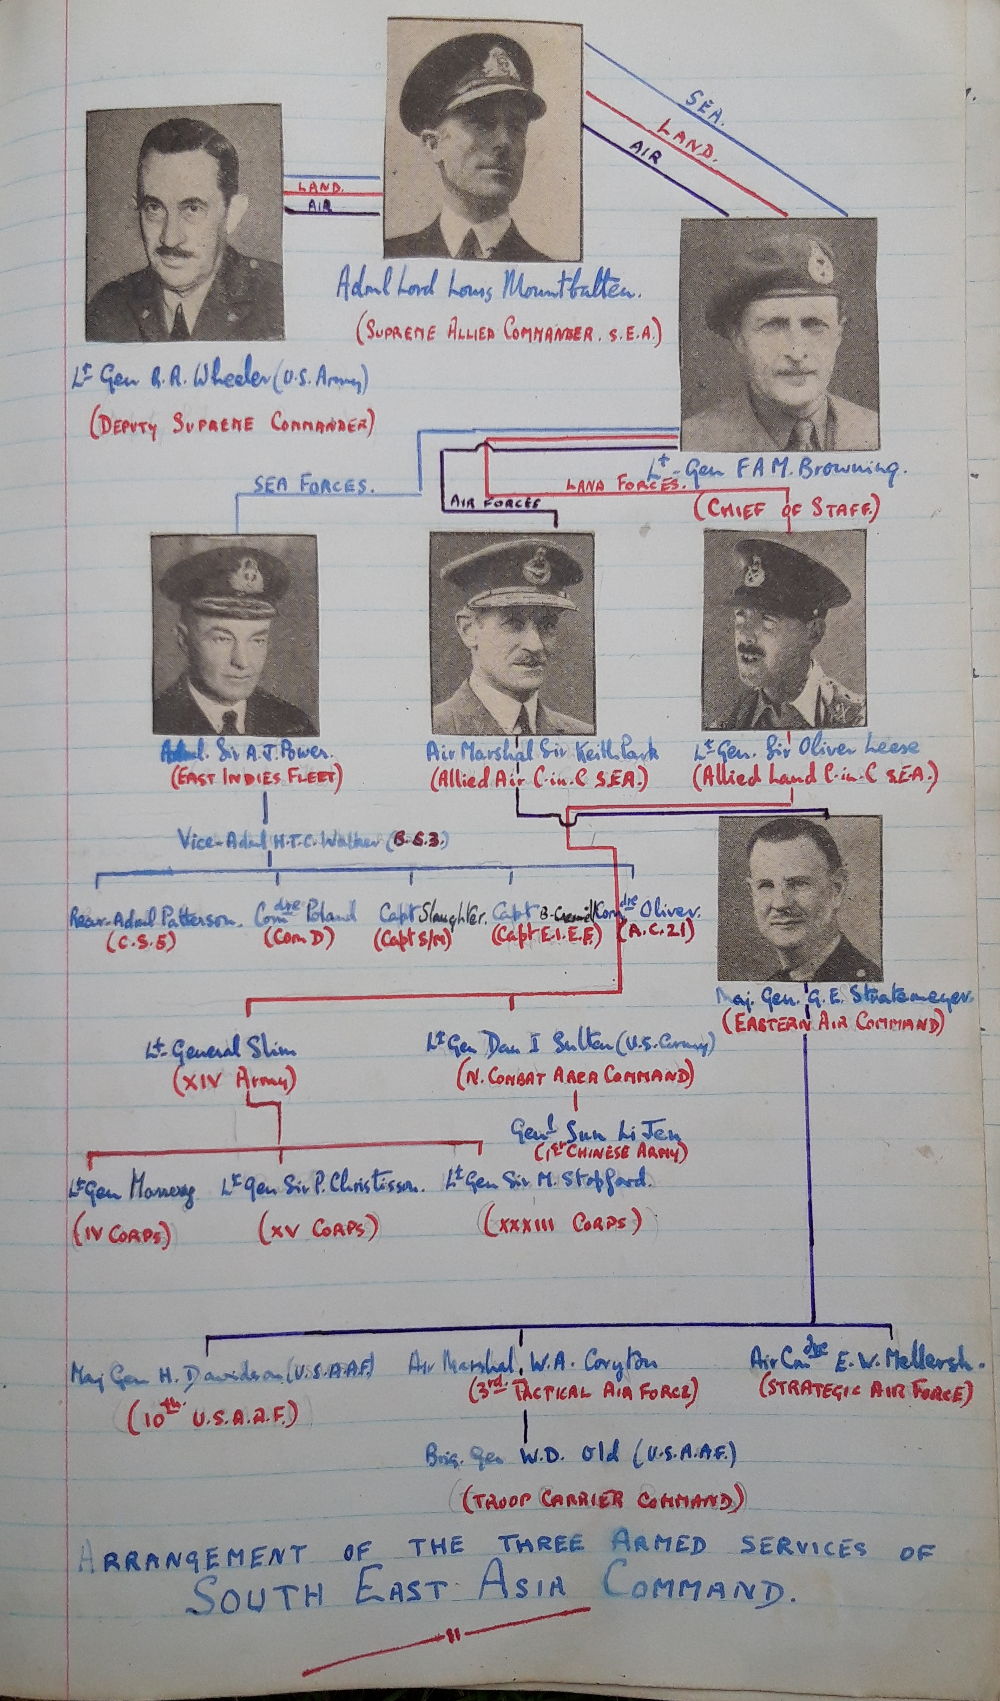 SEA.
LAND.
AIR
LAND.
AIR
Adml Lord Louis Mountbatten.
(SUPREME ALLIED COMMANDER. S.E.A.)
Lt Gen R.A. Wheeler (U.S. Army)
(DEPUTY SUPREME COMMANDER)
Lt-Gen F A M. Browning.
(CHIEF OF STAFF)
SEA FORCES.
AIR FORCES
LAND FORCES.
Adml. Sir A.J. Power.
(EAST INDIES FLEET)
Air Marshal Sir Keith Park
(Allied Air C-in-C S.E.A.)
Lt-Gen. Sir Oliver Leese
(Allied Land C-in-C S.E.A.)
Vice-Adml H.T.C. Walker (B.S.3.)
Rear-Adml Patterson.
(C.S.5)
Comdre Poland
(Com D)
Capt Slaughter.
(Capt S/M)
Capt
(Capt E.I.E.F.)
Comdre Oliver.
(A.C.21)
Maj. Gen. G.E. Stratemeyer.
(EASTERN AIR COMMAND)
Lt-General Slim
(XIV Army)
Lt Gen Dan I Sultan (U.S. Army)
(N. COMBAT AREA COMMAND)
Genl Sun Li Jen
(1st CHINESE ARMY)
Lt Gen Messervy
(IV CORPS)
Lt Gen Sir P. Christison.
(XV CORPS)
Lt Gen Sir M. Stopford.
(XXXIII CORPS)
Maj Gen H. Davidson (U.S.A.A.F.)
(10th U.S.A.A.F.)
Air Marshal. W.A. Coryton
(3rd. TACTICAL AIR FORCE)
Air Comdre E.W. Mellersh.
(STRATEGIC AIR FORCE)
Brig. Gen W.D. Old (U.S.A.A.F.)
(TROOP CARRIER COMMAND)
ARRANGEMENT OF THE THREE ARMED SERVICES OF
SOUTH EAST ASIA COMMAND.